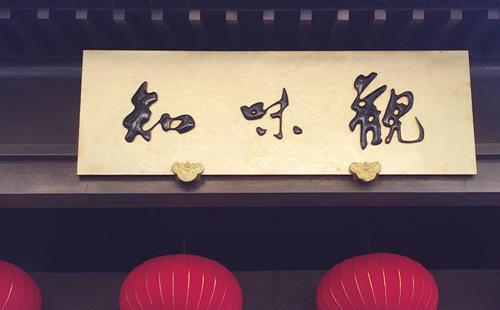 知味觀